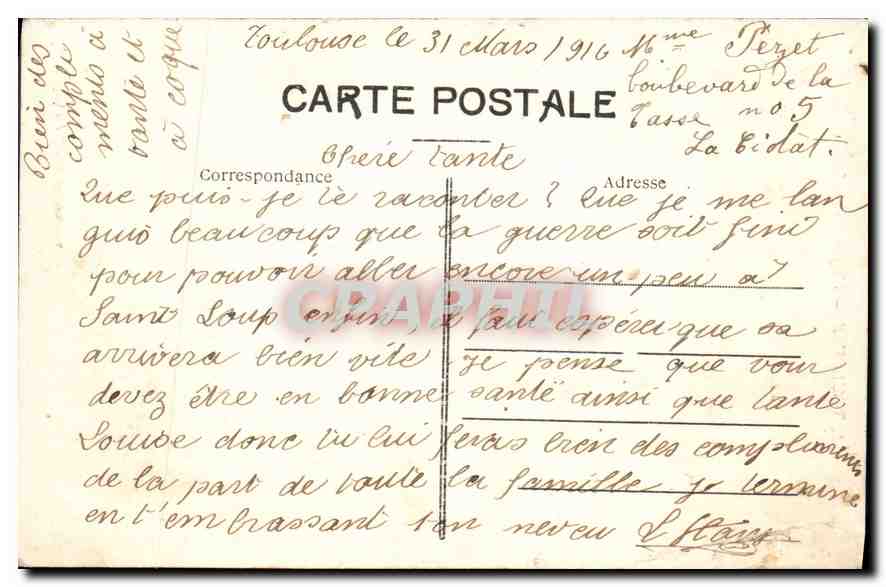 Toulouse le 31 Mars 1916
Mme Pézet
boulevard de la
Tasse no 5
La Ciotat.
CARTE POSTALE
Correspondance
Adresse
Chère tante
Que puis-je te raconter ? Que je me lan
guis beaucoup que la guerre soit fini
pour pouvoir aller encore un peu a
Saint Loup enfin, il faut espérer que sa
arrivera bien vite. je pense que vour
devez être en bonne santé ainsi que tante
Louise donc tu lui feras bien des compliments
de la part de toute la famille je termine
en t'embrassant ton neveu L
Bien des
compli
ments à
tante et
à coque
CRAPHIL